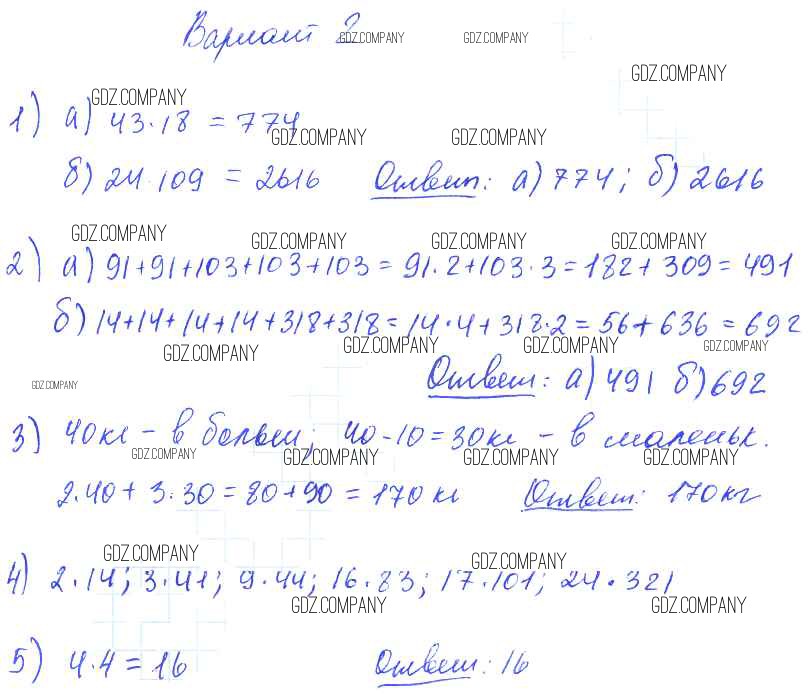 Вариант 2
GDZ.COMPANY GDZ.COMPANY
GDZ.COMPANY
GDZ.COMPANY
1) а) 43·18 = 774
GDZ.COMPANY GDZ.COMPANY
б) 24·109 = 2616 Ответ: а) 774; б) 2616
GDZ.COMPANY GDZ.COMPANY GDZ.COMPANY GDZ.COMPANY
2) а) 91+91+103+103+103 = 91·2+103·3 = 182+309 = 491
б) 14+14+14+14+318+318 = 14·4+318·2 = 56+636 = 692
GDZ.COMPANY GDZ.COMPANY GDZ.COMPANY GDZ.COMPANY
GDZ.COMPANY
Ответ: а) 491 б) 692
3) 40кг – в больш; 40-10=30кг – в маленьк.
GDZ.COMPANY GDZ.COMPANY GDZ.COMPANY GDZ.COMPANY
2·40+3·30=80+90 = 170 кг Ответ: 170кг
GDZ.COMPANY GDZ.COMPANY
4) 2·14; 3·41; 9·44; 16·83; 17·101; 24·321
GDZ.COMPANY GDZ.COMPANY
5) 4·4 = 16 Ответ: 16